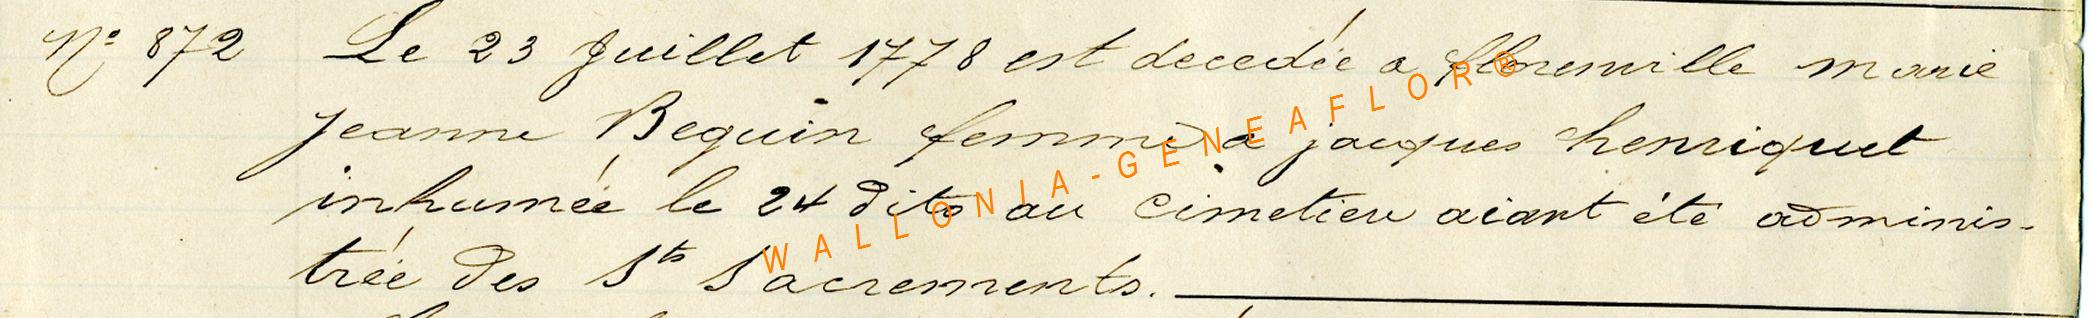 Nº 872 Le 23 Juillet 1778 est decedée a florenville marie
jeanne Bequin femme a jacques henriquet
inhumée le 24 dito au cimetiere aiant été adminis-
trée des Sts Sacrements.
WALLONIA-GENEAFLOR®